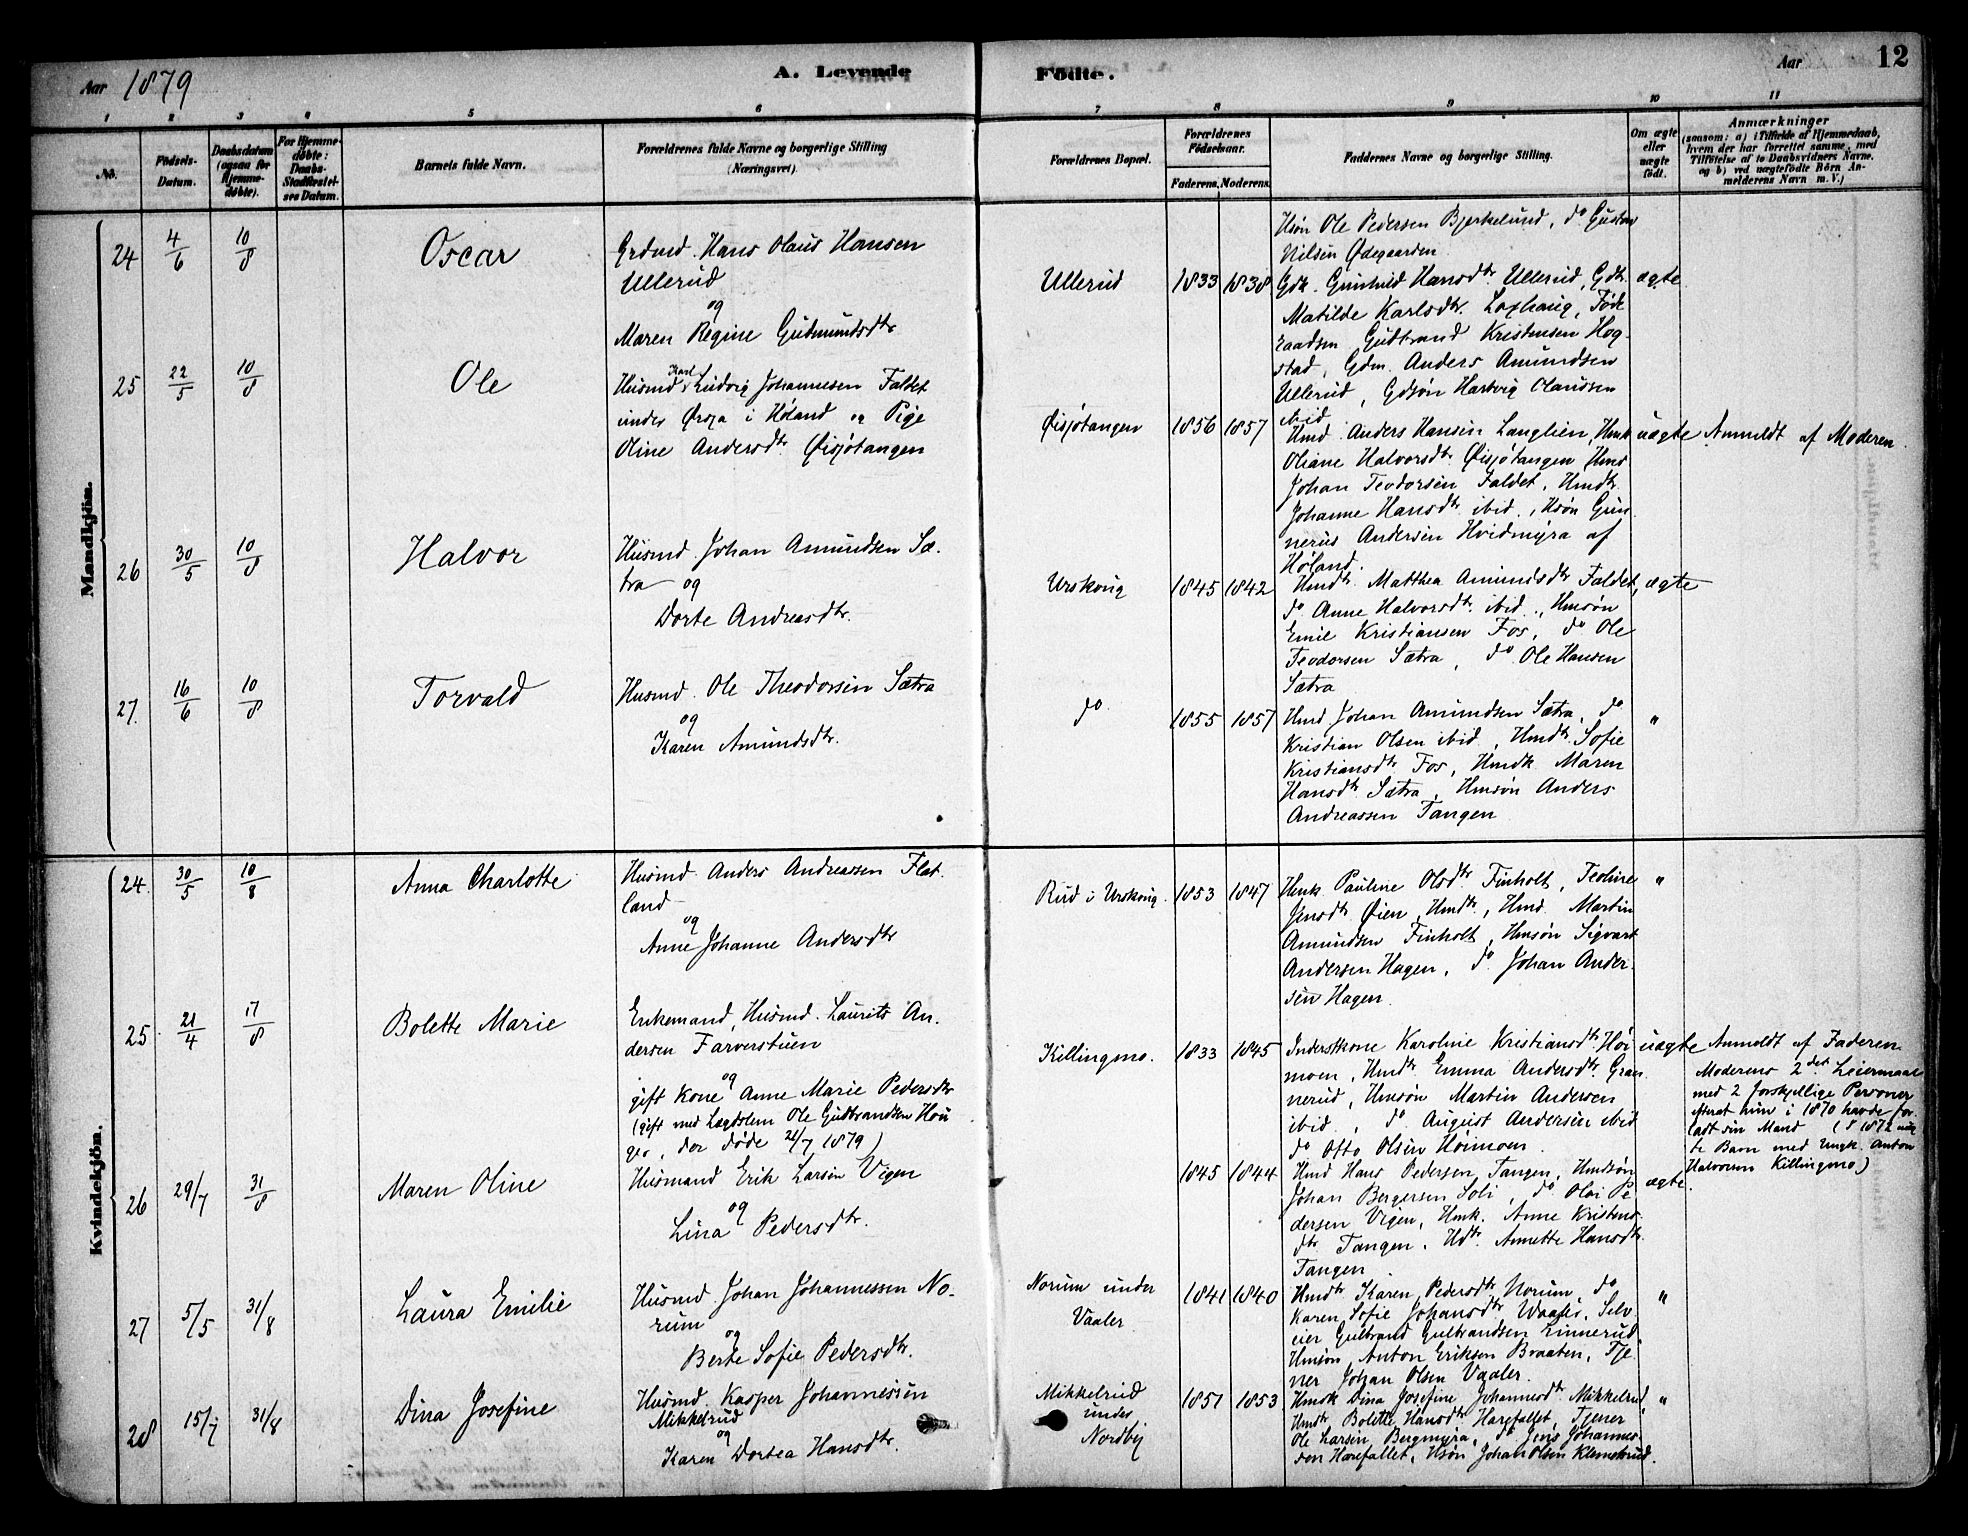 Aar 1879
A. Levende
Födte.
Aar
12
1 2 3 4 5 6 7 8 9 10 11
No.
Födsels-Datum.
Daabsdatum (ogsaa for Hjemme-döbte).
For Hjemme-döbte: Daabs-Stadfæstel-ses Datum.
Barnets fulde Navn.
Forældrenes fulde Navne og borgerlige Stilling (Næringsvei).
Forældrenes Bopæl.
Forældrenes Födselsaar.
Faderens. Moderens.
Faddernes Navne og borgerlige Stilling.
Om ægte eller uægte födt.
Anmærkninger
(saasom: a) i Tilfælde af Hjemmedaab, hvem der har forrettet samme, med Tilföielse af to Daabsvidners Navne, og b) ved uægtefödte Börn An-melderens Navn m. V.)
Mandkjön.
24 4/6 10/8 Oscar
Grdmd. Hans Olaus Hansen
Ullerud
og
Maren Regine Gudmundsdtr
Ullerud 1833 1838
Hsön Ole Pedersen Bjerkelund, do Gustav
Nilsen Ödegaarden
Gdk. Gunhild Hansdtr Ullerud, Gdtr. ægte
Matilde Karlsdtr. Loxhaug, Föde
raadsm Gudbrand Kristensen Hog-
stad, Gdm. Anders Amundsen
Ullerud, Gdsön Hartvig Olaussen
ibid
25 22/5 10/8 Ole
Husmd Karl Ludvig Johannesen Faldet
under Örsja i Höland og Pige
Oline Andersdtr Öisjötangen
Öisjötangen 1856 1857
Hmd. Anders Hansen Langlien, Hmk uægte Anmeldt af Moderen
Oliane Halvorsdtr Öisjötangen Hmd
Johan Teodorsen Faldet, Hmdtr.
Johanne Hansdtr ibid., Hsön Gun-
nerus Andersen Hvidmyra af
Höland.
26 30/5 10/8 Halvor
Husmd. Johan Amundsen Sæ-
tra og
Dorte Andreasdtr.
Urskoug 1845 1842
Hmdtr. Matthea Amundsdtr Faldet, ægte
do Anne Halvorsdtr. ibid., Hmsön
Emil Kristiansen Fos, do Ole
Teodorsen Sætra, do Ole Hansen
Sætra
27. 16/6 10/8 Torvald
Husmd. Ole Theodorsen Sætra
og
Karen Amundsdtr.
do 1855 1857
Hmd Johan Amundsen Sætra, do "
Kristian Olsen ibid, Hmdtr. Sofie
Kristiansdtr Fos, Hmdk Maren
Hansdtr Sætra, Hmsön Anders
Andreassen Tangen
Kvindekjön.
24. 30/5 10/8 Anna Charlotte
Husmd. Anders Andreassen Flat-
land
og
Anne Johanne Andersdtr
Rud i Urskoug. 1853 1847
Hmk Pauline Olsdtr Finholt, Teoline "
Jensdtr Öien, Hmdtr, Hmd. Martin
Amundsen Finholt, Hmsön Sigvart
Andersen Hagen, do. Johan Ander-
sen Hagen.
25. 21/4 17/8 Bolette Marie
Enkemand, Husmd. Laurits An-
dersen Farverstuen
og
gift Kone Anne Marie Pedersdtr
(gift med Lægdslem Ole Gudbrandsen Hou
ger, der döde 21/7 1879)
Killingmo. 1833 1845
Inderstkone Karoline Kristiansdtr Höi uægte Anmeldt af Faderen.
moen, Hmdtr Emma Andersdtr. Gran
nerud, Hmsön Martin Andersen
ibid., do August Andersen ibid
do Otto Olsen Höimoen.
Moderens 2det Leiermaal
med 2 forskjellige Personer
efterat hun i 1870 havde for-
ladt sin Mand (d 1872 uæg
te Barn med Ungk. Anton
Halvorsen Killingmo)
26 29/7 31/8 Maren Oline
Husmand Erik Larsen Vigen
og
Lina Pedersdtr.
1845 1844
Hmd Hans Pedersen Tangen, Hmdsön ægte.
Johan Bergersen Soli, do Olai Pe
dersen Vigen, Hmk. Anne Kristens-
dtr Tangen, Hdtr. Annette Hansdtr.
Tangen
27 5/5 31/8 Laura Emilie
Husmd. Johan Johannessen No-
rum
og
Berte Sofie Pedersdtr.
Norum under
Vaaler. 1841 1840
Hmdtr. Karen Pedersdtr Norum, do "
Karen Sofie Johansdtr Vaaler, Selv
eier Gulbrand Gulbrandsen Linnerud,
Hmsön Anton Eriksen Braaten, Tje
ner Johan Olsen Vaaler.
28 15/7 31/8 Dina Josefine
Husmd. Kasper Johannessen
Mikkelrud
og
Karen Dortea Hansdtr.
Mikkelrud
under
Nordby 1851 1853
Hmdk Dina Josefine Johannesdtr Mikkelrud, "
Hmdtr. Bolette Hansdtr. Harefallet, Tjener
Ole Larsen Bergmyra, do Jens Johannes-
sen Harefallet, Hsön Johan Olsen Klemetsrud.